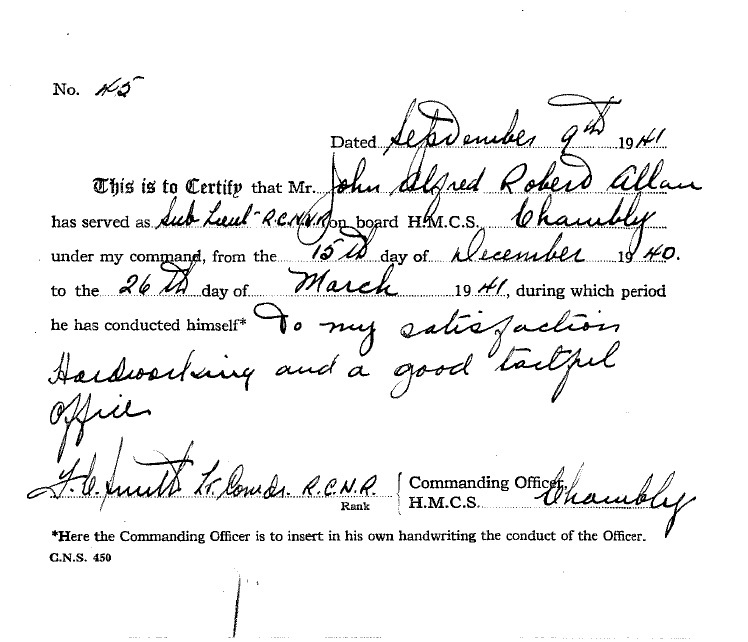 No. 45
Dated September 9th 1941
This is to Certify that Mr. John Alfred Robert Allan
has served as Sub Lieut R.C.N.V.R on board H.M.C.S. Chambly
under my command, from the 15th day of December 1940.
to the 26th day of March 1941, during which period
he has conducted himself* To my satisfaction
Hardworking and a good tactful
Officer
F.C. Smith Lt. Comdr. R.C.N.R. Commanding Officer,
Rank H.M.C.S. Chambly
*Here the Commanding Officer is to insert in his own handwriting the conduct of the Officer.
C.N.S. 450